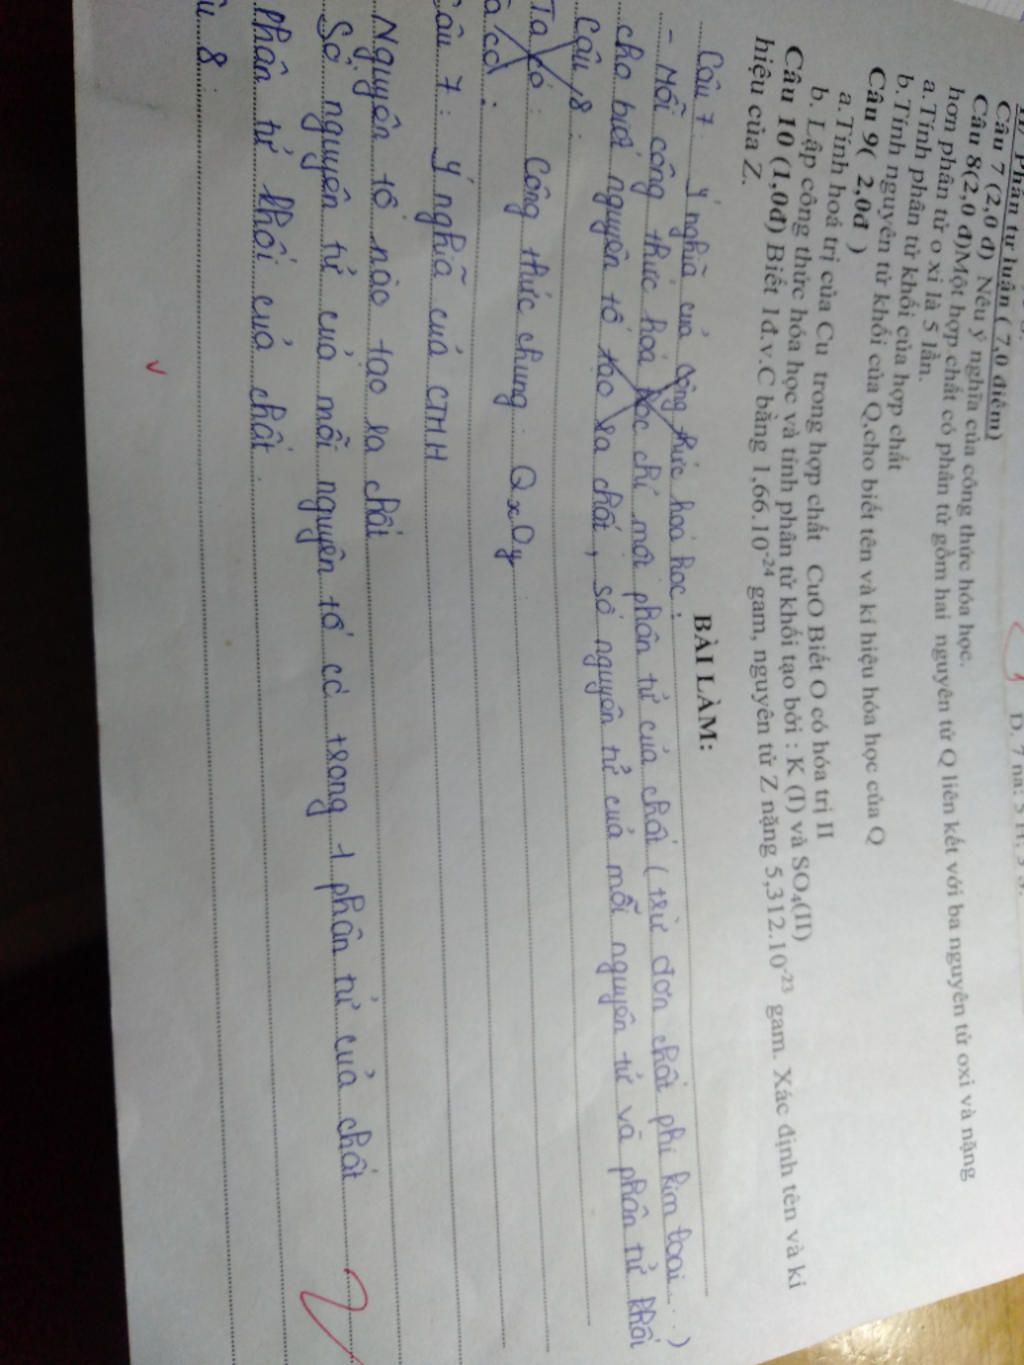 II) Phần tự luận ( 7,0 điểm)
Câu 7 (2,0 đ) Nêu ý nghĩa của công thức hóa học.
Câu 8(2,0 đ)Một hợp chất có phân tử gồm hai nguyên tử Q liên kết với ba nguyên tử oxi và nặng
hơn phân tử o xi là 5 lần.
a.Tính phân tử khối của hợp chất
b.Tính nguyên tử khối của Q,cho biết tên và kí hiệu hóa học của Q
Câu 9( 2,0đ )
a.Tính hoá trị của Cu trong hợp chất CuO Biết O có hóa trị II
b. Lập công thức hóa học và tính phân tử khối tạo bởi : K (I) và SO₄(II)
Câu 10 (1,0đ) Biết 1đ.v.C bằng 1,66.10⁻²⁴ gam, nguyên tử Z nặng 5,312.10⁻²³ gam. Xác định tên và kí
hiệu của Z.
BÀI LÀM:
Câu 7. Ý nghĩa của công thức hoá học :
- Mỗi công thức hóa học chỉ một phân tử của chất ( trừ đơn chất phi kim loại... )
cho biết nguyên tố tạo ra chất, số nguyên tử của mỗi nguyên tử và phân tử khối
Câu 8 :
Ta có : Công thức chung : QxOy
Câu 7 : Ý nghĩa của CTHH
Nguyên tố nào tạo ra chất
Số nguyên tử của mỗi nguyên tố có trong 1 phân tử của chất
Phân tử khối của chất.
8 :